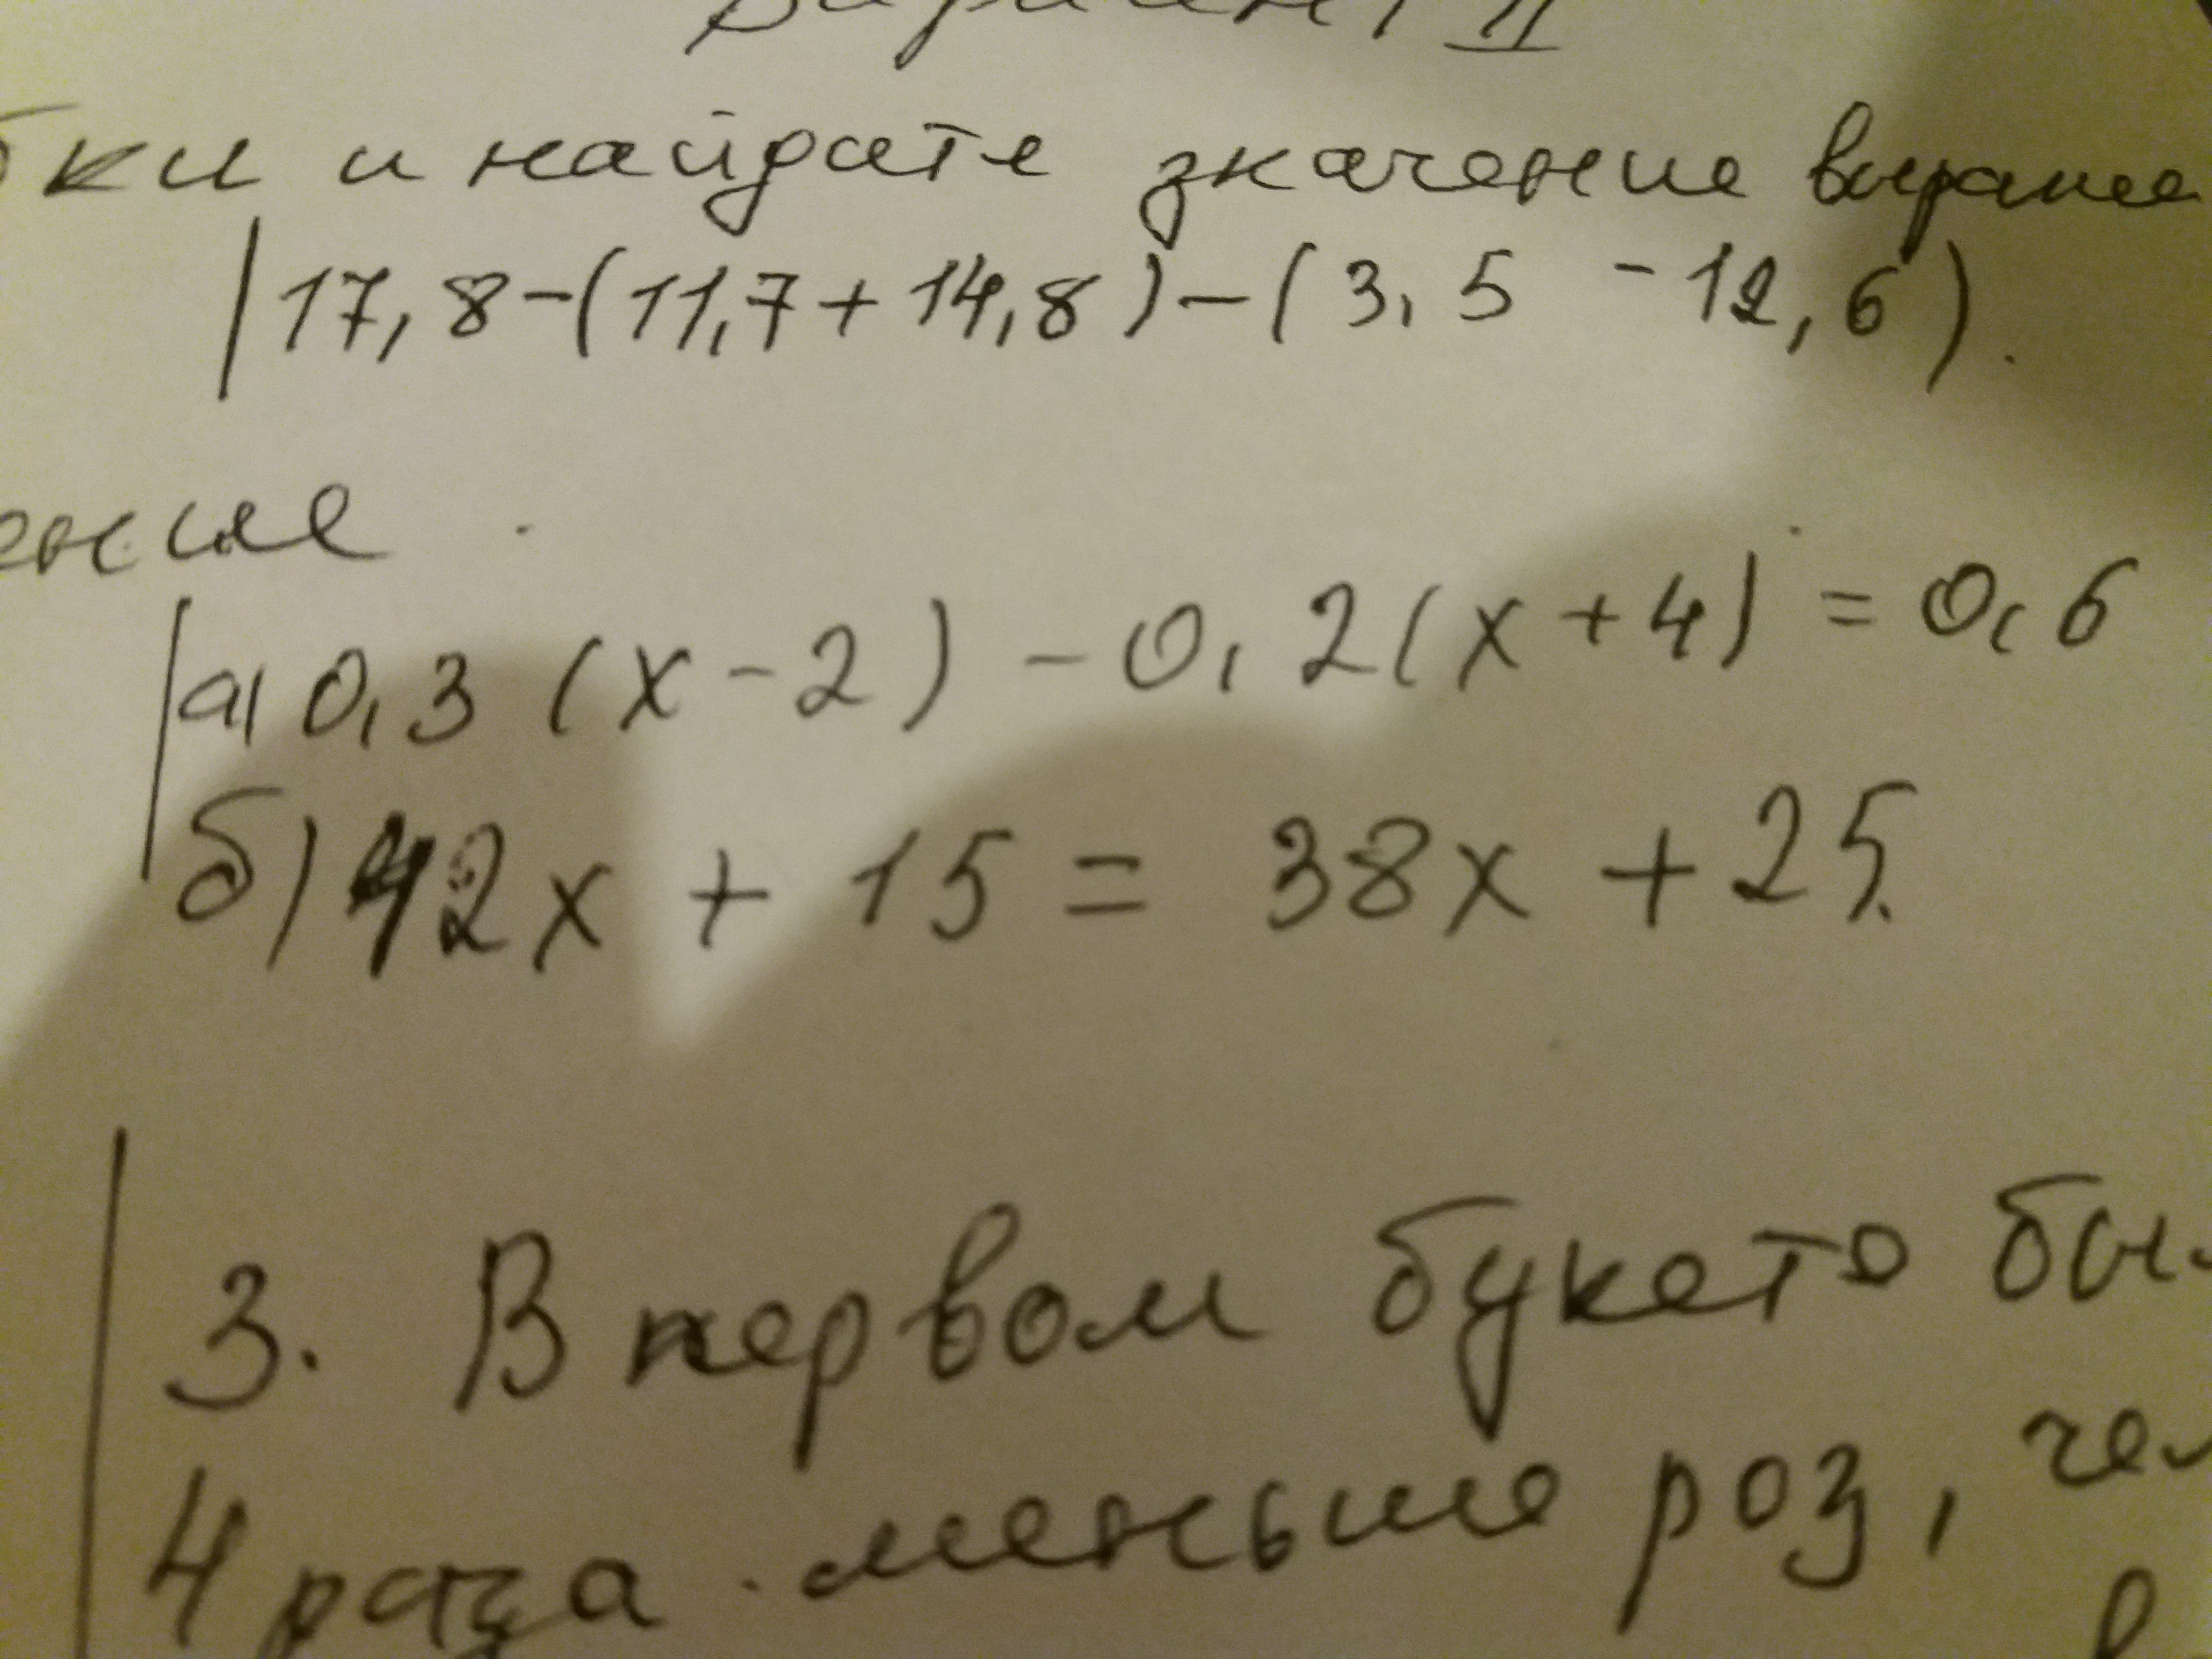 Вариант II
бки и найдите значение выраже
17,8-(11,7+14,8)-(3,5 -12,6).
ение
а) 0,3 (x-2) -0,2(x+4) = 0,6
б) 42x + 15 = 38x + 25.
3. В первом букете бы
4 раза меньше роз, чем